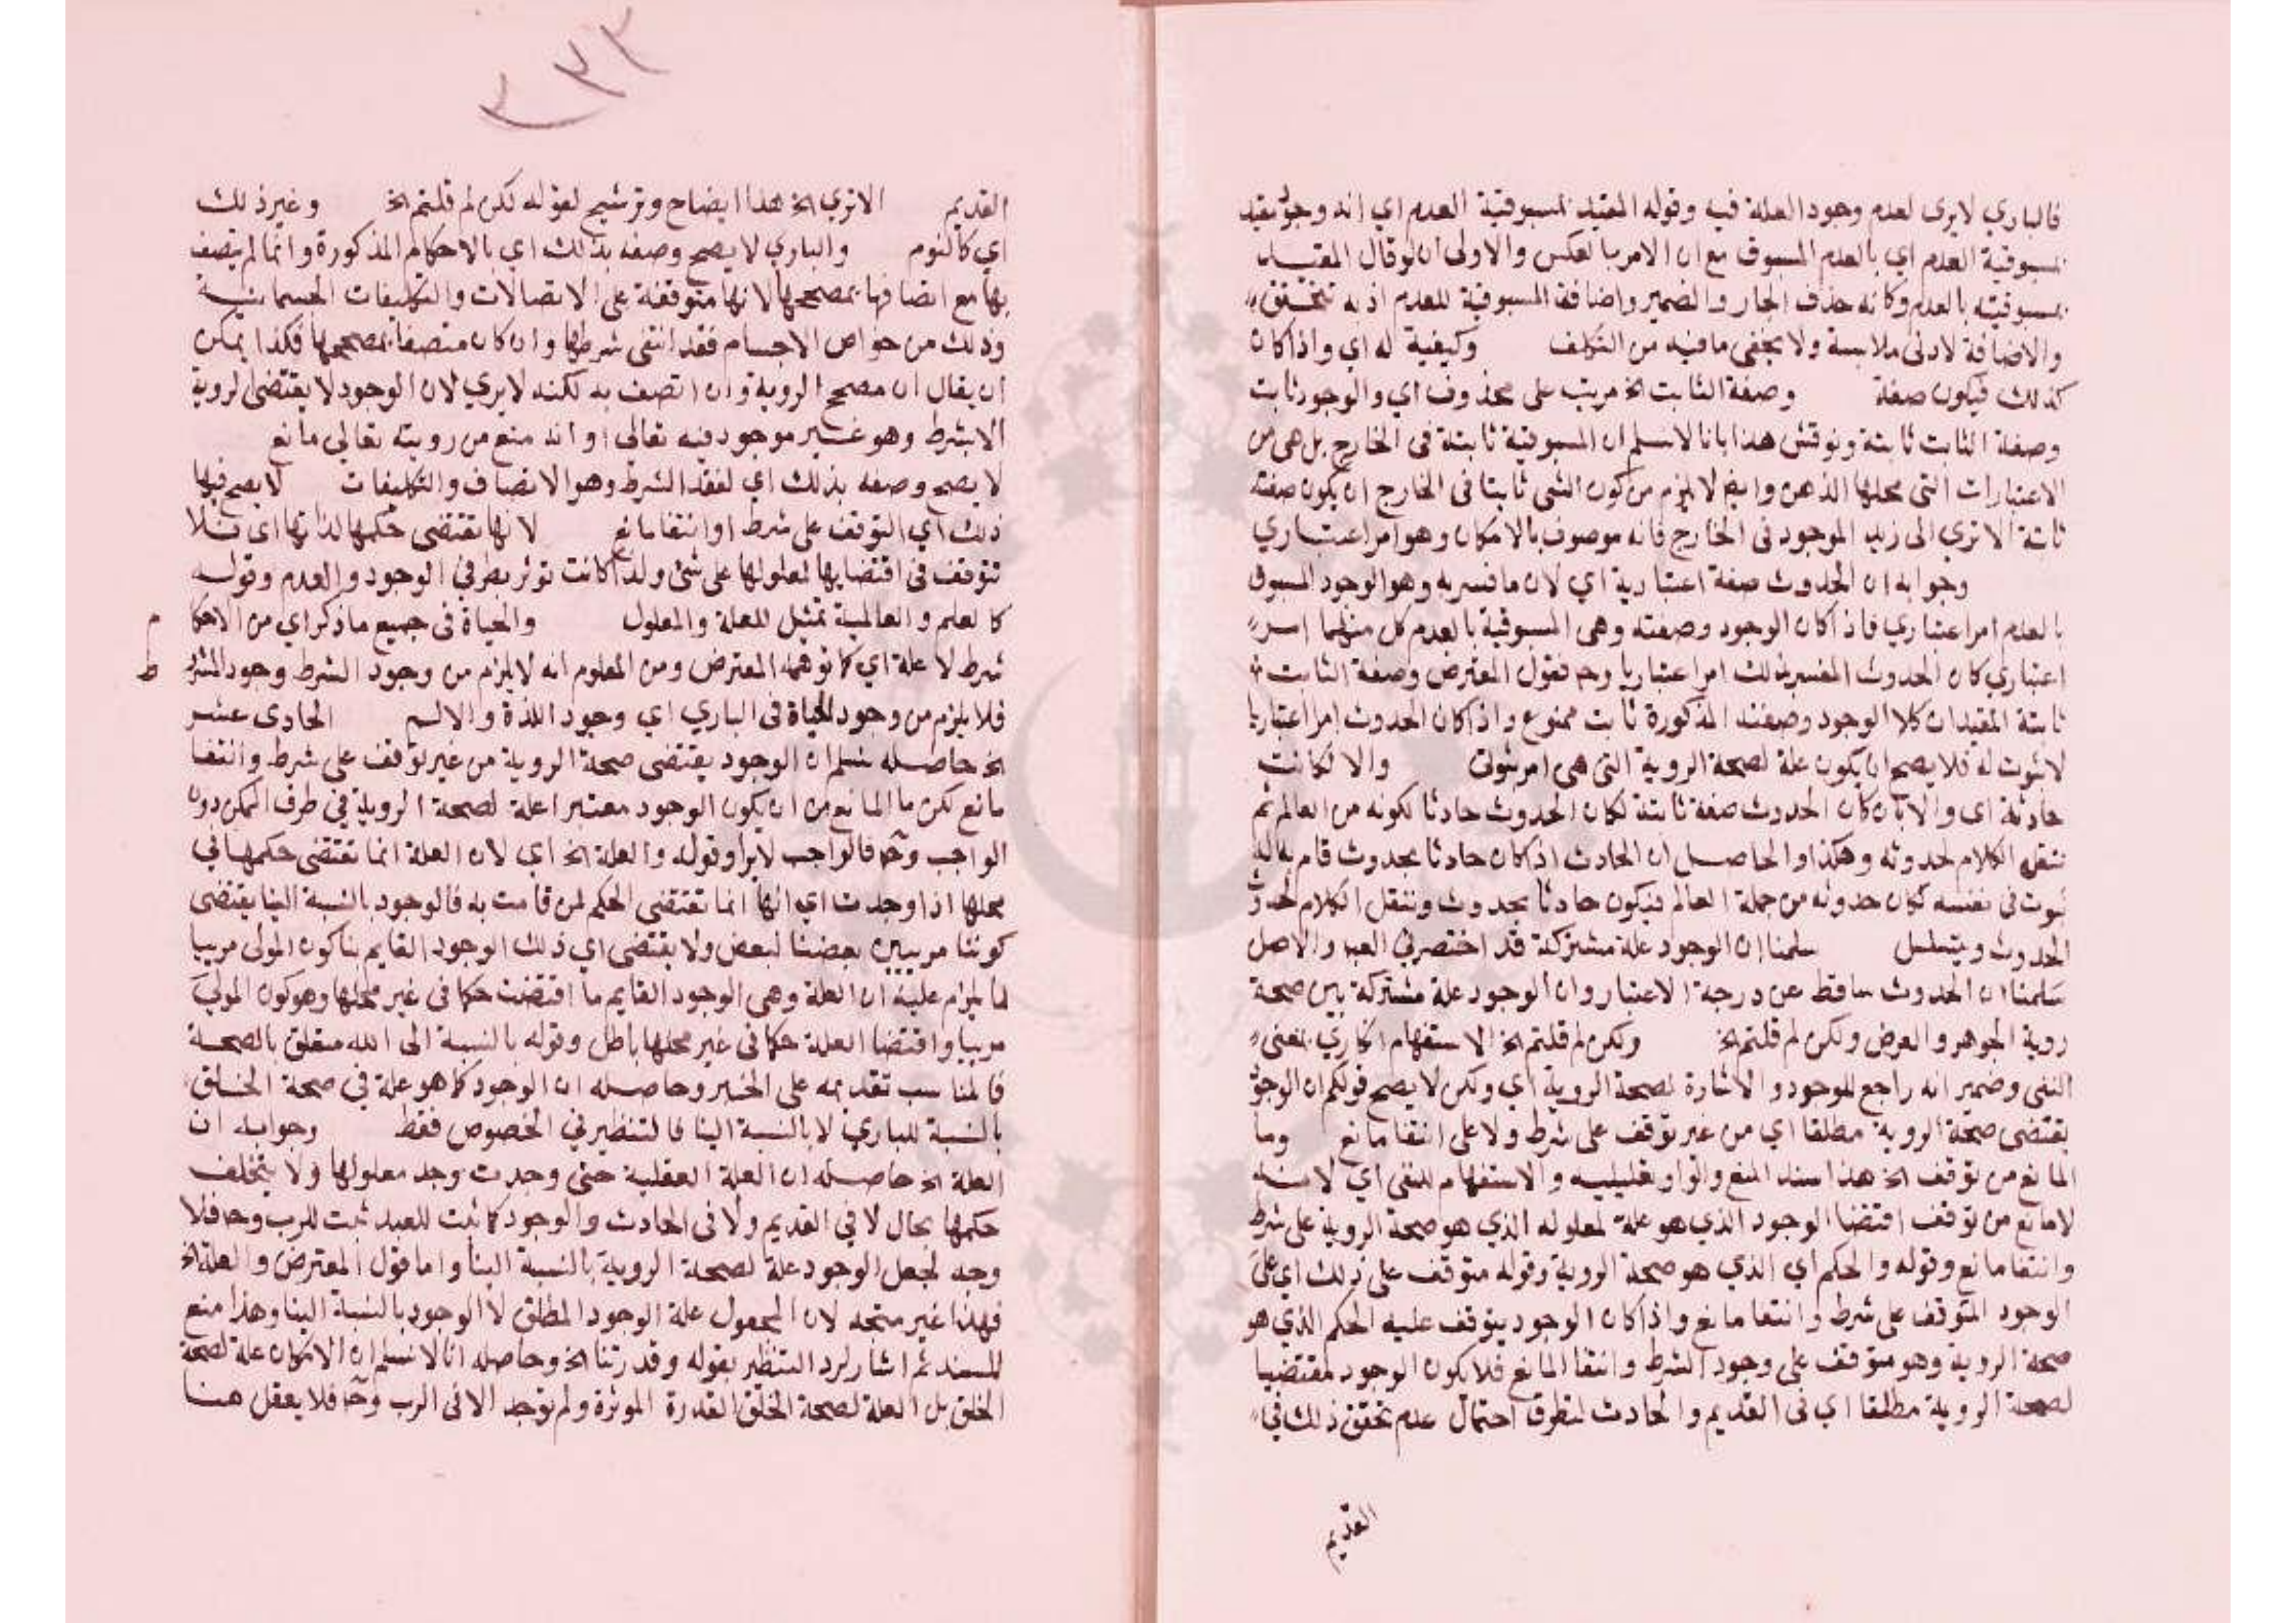 فالباري لا يرى لعدم وجود العلة فيه وقوله المقيد بمسبوقية العدم اي انه وجود مقيد
بمسبوقية العدم اي بالعدم المسبوق مع ان الامر بالعكس والاولى ان لو قال المقيد
بمسبوقيته بالعدم وكانه حذف الجار والضمير واضافة المسبوقية للعدم اذ به تتحقق
والاضافة لادنى ملابسة ولا يخفى ما فيه من التكلف وكيفية له اي واذا كان
كذلك فيكون صفة وصفة الثابت الخ مرتب على محذوف اي والوجود ثابت
وصفة الثابت ثابتة ونوقش هذا بانا لا نسلم ان المسبوقية ثابتة في الخارج بل هي من
الاعتبارات التي محلها الذهن وايضا لا يلزم من كون الشي ثابتا في الخارج ان يكون صفته
ثابتة الا تري الى زيد الموجود في الخارج فانه موصوف بالامكان وهو امر اعتباري
وجوابه ان الحدوث صفة اعتبارية اي لان ما فسر به وهو الوجود المسبوق
بالعدم امر اعتباري فاذا كان الوجود وصفته وهي المسبوقية بالعدم كل منهما امر
اعتباري كان الحدوث المفسر بذلك امرا اعتباريا وح فقول المعترض وصفة الثابت
ثابتة المفيد ان كلا الوجود وصفته المذكورة ثابت ممنوع واذا كان الحدوث امرا اعتباريا
لا ثبوت له فلا يصح ان يكون علة لصحة الروية التي هي امر ثبوتي والا لكانت
حادثة اي والا بان كان الحدوث صفة ثابتة لكان الحدوث حادثا لكونه من العالم ثم
ننقل الكلام لحدوثه وهكذا والحاصل ان الحادث اذا كان حادثا بحدوث قام به له
ثبوت في نفسه كان حدوثه من جملة العالم فيكون حادثا بحدوث وننقل الكلام لحدوث
الحدوث ويتسلسل سلمنا ان الوجود علة مشتركة قد اختصر في العبد والاصل
سلمنا ان الحدوث ساقط عن درجة الاعتبار وان الوجود علة مشتركة بين صحة
روية الجوهر والعرض ولكن لم قلتم الخ ولكن لم قلتم الخ الاستفهام انكاري بمعنى
النفى وضمير انه راجع للوجود والاشارة لصحة الروية اي ولكن لا يصح قولكم ان الوجود
يقتضى صحة الروية مطلقا اي من غير توقف على شرط ولا على انتفا مانع وما
المانع من توقف الخ هذا سند المنع والواو تعليليه والاستفهام للنفى اي لانه
لا مانع من توقف اقتضا الوجود الذي هو علة لمعلوله الذي هو صحة الروية على شرط
وانتفا مانع وقوله والحكم اي الذي هو صحة الروية وقوله متوقف على ذلك اي على
الوجود المتوقف على شرط وانتفا مانع واذا كان الوجود يتوقف عليه الحكم الذي هو
صحة الروية وهو متوقف على وجود الشرط وانتفا المانع فلا يكون الوجود مقتضيا
لصحة الروية مطلقا اي في القديم والحادث لتطرق احتمال عدم تحقق ذلك في
القديم
٢٣٣
القديم الا تري الخ هذا ايضاح وترشيح لقوله لكن لم قلتم الخ وغير ذلك
اي كالنوم والباري لا يصح وصفه بذلك اي بالاحكام المذكورة وانما لم يتصف
بها مع اتصافه بمصححها لانها متوقفة على الاتصالات والتكيفات الجسمانية
وذلك من خواص الاجسام فقد انتفى شرطها وان كان متصفا بمصححها فكذا يمكن
ان يقال ان مصحح الروية وان اتصف به لكنه لا يري لان الوجود لا يقتضى الروية
الا بشرط وهو غير موجود فيه تعالى او انه منع من رويته تعالى مانع
لا يصح وصفه بذلك اي لفقد الشرط وهو الاتصاف والتكيفات لا يصح فيها
ذلك اي التوقف على شرط او انتفا مانع لانها تقتضى حكمها لذاتها اي فلا
تتوقف في اقتضايها لمعلولها على شئ ولذا كانت توثر بطرفي الوجود والعدم وقوله
كالعلم والعالمية تمثيل للعلة والمعلول والحياة في جميع ما ذكر اي من الاحكام
شرط لا علة اي كما توهمه المعترض ومن المعلوم انه لا يلزم من وجود الشرط وجود المشروط
فلا يلزم من وجود الحياة في الباري اي وجود اللذة والالم الحادى عشر
الخ حاصله نسلم ان الوجود يقتضى صحة الروية من غير توقف على شرط وانتفا
مانع لكن ما المانع من ان يكون الوجود معتبرا علة لصحة الروية في طرف الممكن دون
الواجب وح فالواجب لا يرا وقوله والعلة الخ اي لان العلة انما تقتضى حكمها في
محلها اذا وجدت اي انها انما تقتضي الحكم لمن قامت به فالوجود بالنسبة الينا يقتضى
كوننا مربيين بعضنا لبعض ولا يقتضى اي ذلك الوجود القايم بنا كون المولى مربيا
لما يلزم عليه ان العلة وهي الوجود القايم ما اقتضت حكما في غير محلها وهو كون المولى
مربيا واقتضا العلة حكما في غير محلها باطل وقوله بالنسبة الى الله متعلق بالصحة
فالمناسب تقديمه على الخبر وحاصله ان الوجود كما هو علة في صحة الخلق
بالنسبة للباري لا بالنسبة الينا فالتنظير في الخصوص فقط وجوابه ان
العلة الخ حاصله ان العلة العقلية حتى وجدت وجد معلولها ولا يتخلف
حكمها بحال لا في القديم ولا في الحادث والوجود كما ثبت للعبد ثبت للرب وح فلا
وجه لجعل الوجود علة لصحة الروية بالنسبة الينا واما قول المعترض والعلة الخ
فهذا غير متجه لان المجعول علة الوجود المطلق لا الوجود بالنسبة الينا وهذا منع
للسند ثم اشار لرد التنظير بقوله وقدرتنا الخ وحاصله انا لا نسلم ان الامكان علة لصحة
الخلق بل العلة لصحة الخلق القدرة الموثرة ولم توجد الا في الرب وح فلا يعقل هنا